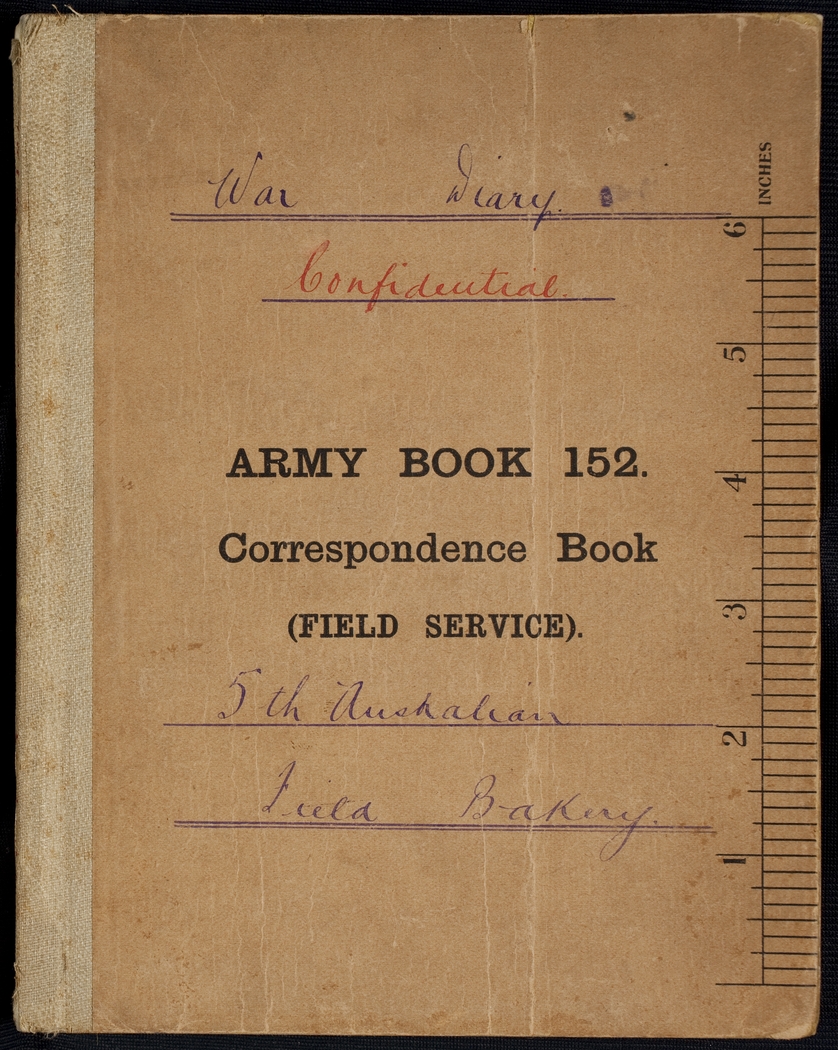 War Diary.
Confidential.
ARMY BOOK 152.
Correspondence Book
(FIELD SERVICE).
5th Australian
Field Bakery.
INCHES
6
5
4
3
2
1